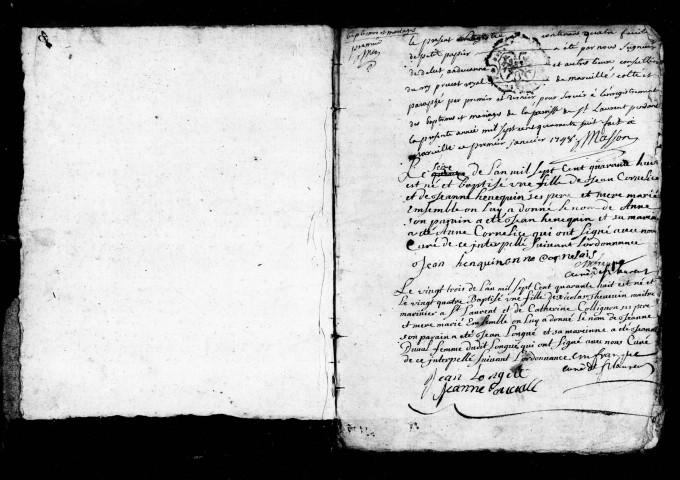 baptemes et mariages
premier
le present Registre contenant quatre feuille
de petit papier a été par nous Seigneur
et autres lieux conseiller
du roy prevot royal de marville, cotté et
paraphé par premier et dernier pour servir a l'enregistrement
des baptemes et mariages de la paroisse de St Laurent pendant
la presente année mil sept cent quarante huit fait a
marville ce premier janvier 1748 Masson
Le seize de L'an mil sept Cent quarante huit
est né et baptisé une fille de Jean Cornelice
et de Jeanne henequin ses pere et mere mariés
Ensemble on Luy a donné le nom de Anne
son parain a été Jean henequin et sa maraine
a été Anne Cornelice qui ont signé avec nous
Curé de ce interpellé suivant L'ordonnance
Jean henquin anne Cornelais
curé de st laurent
Le vingt trois de L'an mil sept Cent quarante huit est né et
Le vingt quatre Baptisé une fille de Nicolas maitre
a St Laurent et de Catherine Collignon ses pere
et mere mariés Ensemble on Luy a donné le nom de Jeanne
son parain a été Jean Longué et sa mareinne a été Jeanne
Duval femme dudit Longué qui ont signé avec nous Curé
de ce interpellé suivant L'ordonnance
curé de st laurent
Jean Longué
Jeanne Duvalle